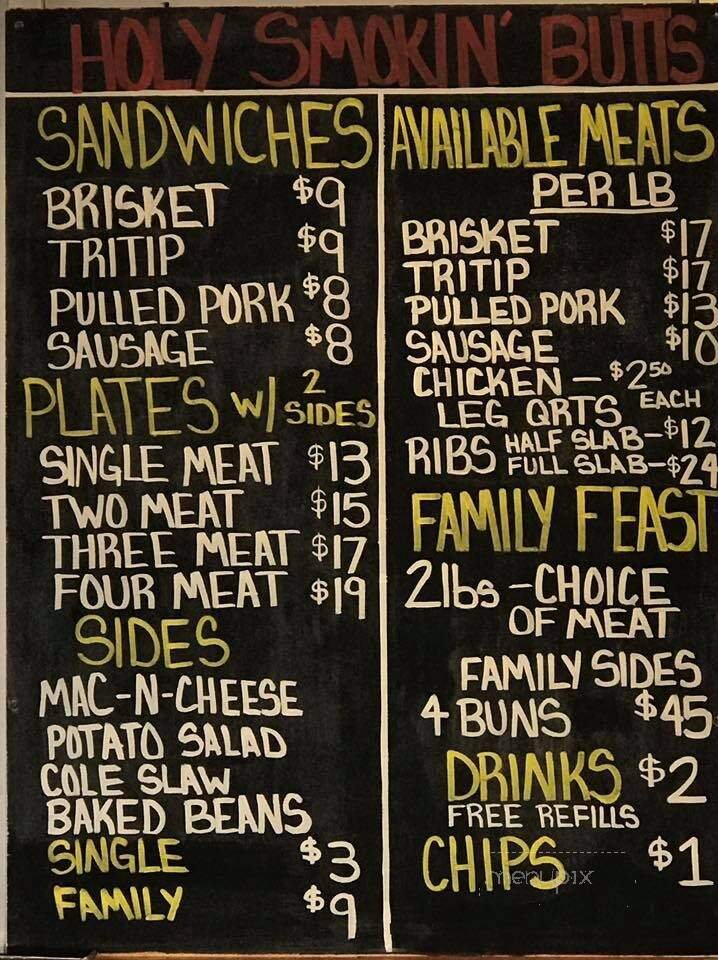 HOLY SMOKIN' BUTTS
SANDWICHES
BRISKET $9
TRITIP $9
PULLED PORK $8
SAUSAGE $8
PLATES w/ 2 SIDES
SINGLE MEAT $13
TWO MEAT $15
THREE MEAT $17
FOUR MEAT $19
SIDES
MAC-N-CHEESE
POTATO SALAD
COLE SLAW
BAKED BEANS
SINGLE $3
FAMILY $9
AVAILABLE MEATS
PER LB
BRISKET $17
TRITIP $17
PULLED PORK $13
SAUSAGE $10
CHICKEN - $2.50 EACH
LEG QRTS
RIBS HALF SLAB - $12
FULL SLAB - $24
FAMILY FEAST
2lbs - CHOICE
OF MEAT
FAMILY SIDES
4 BUNS $45
DRINKS $2
FREE REFILLS
CHIPS $1
menupix